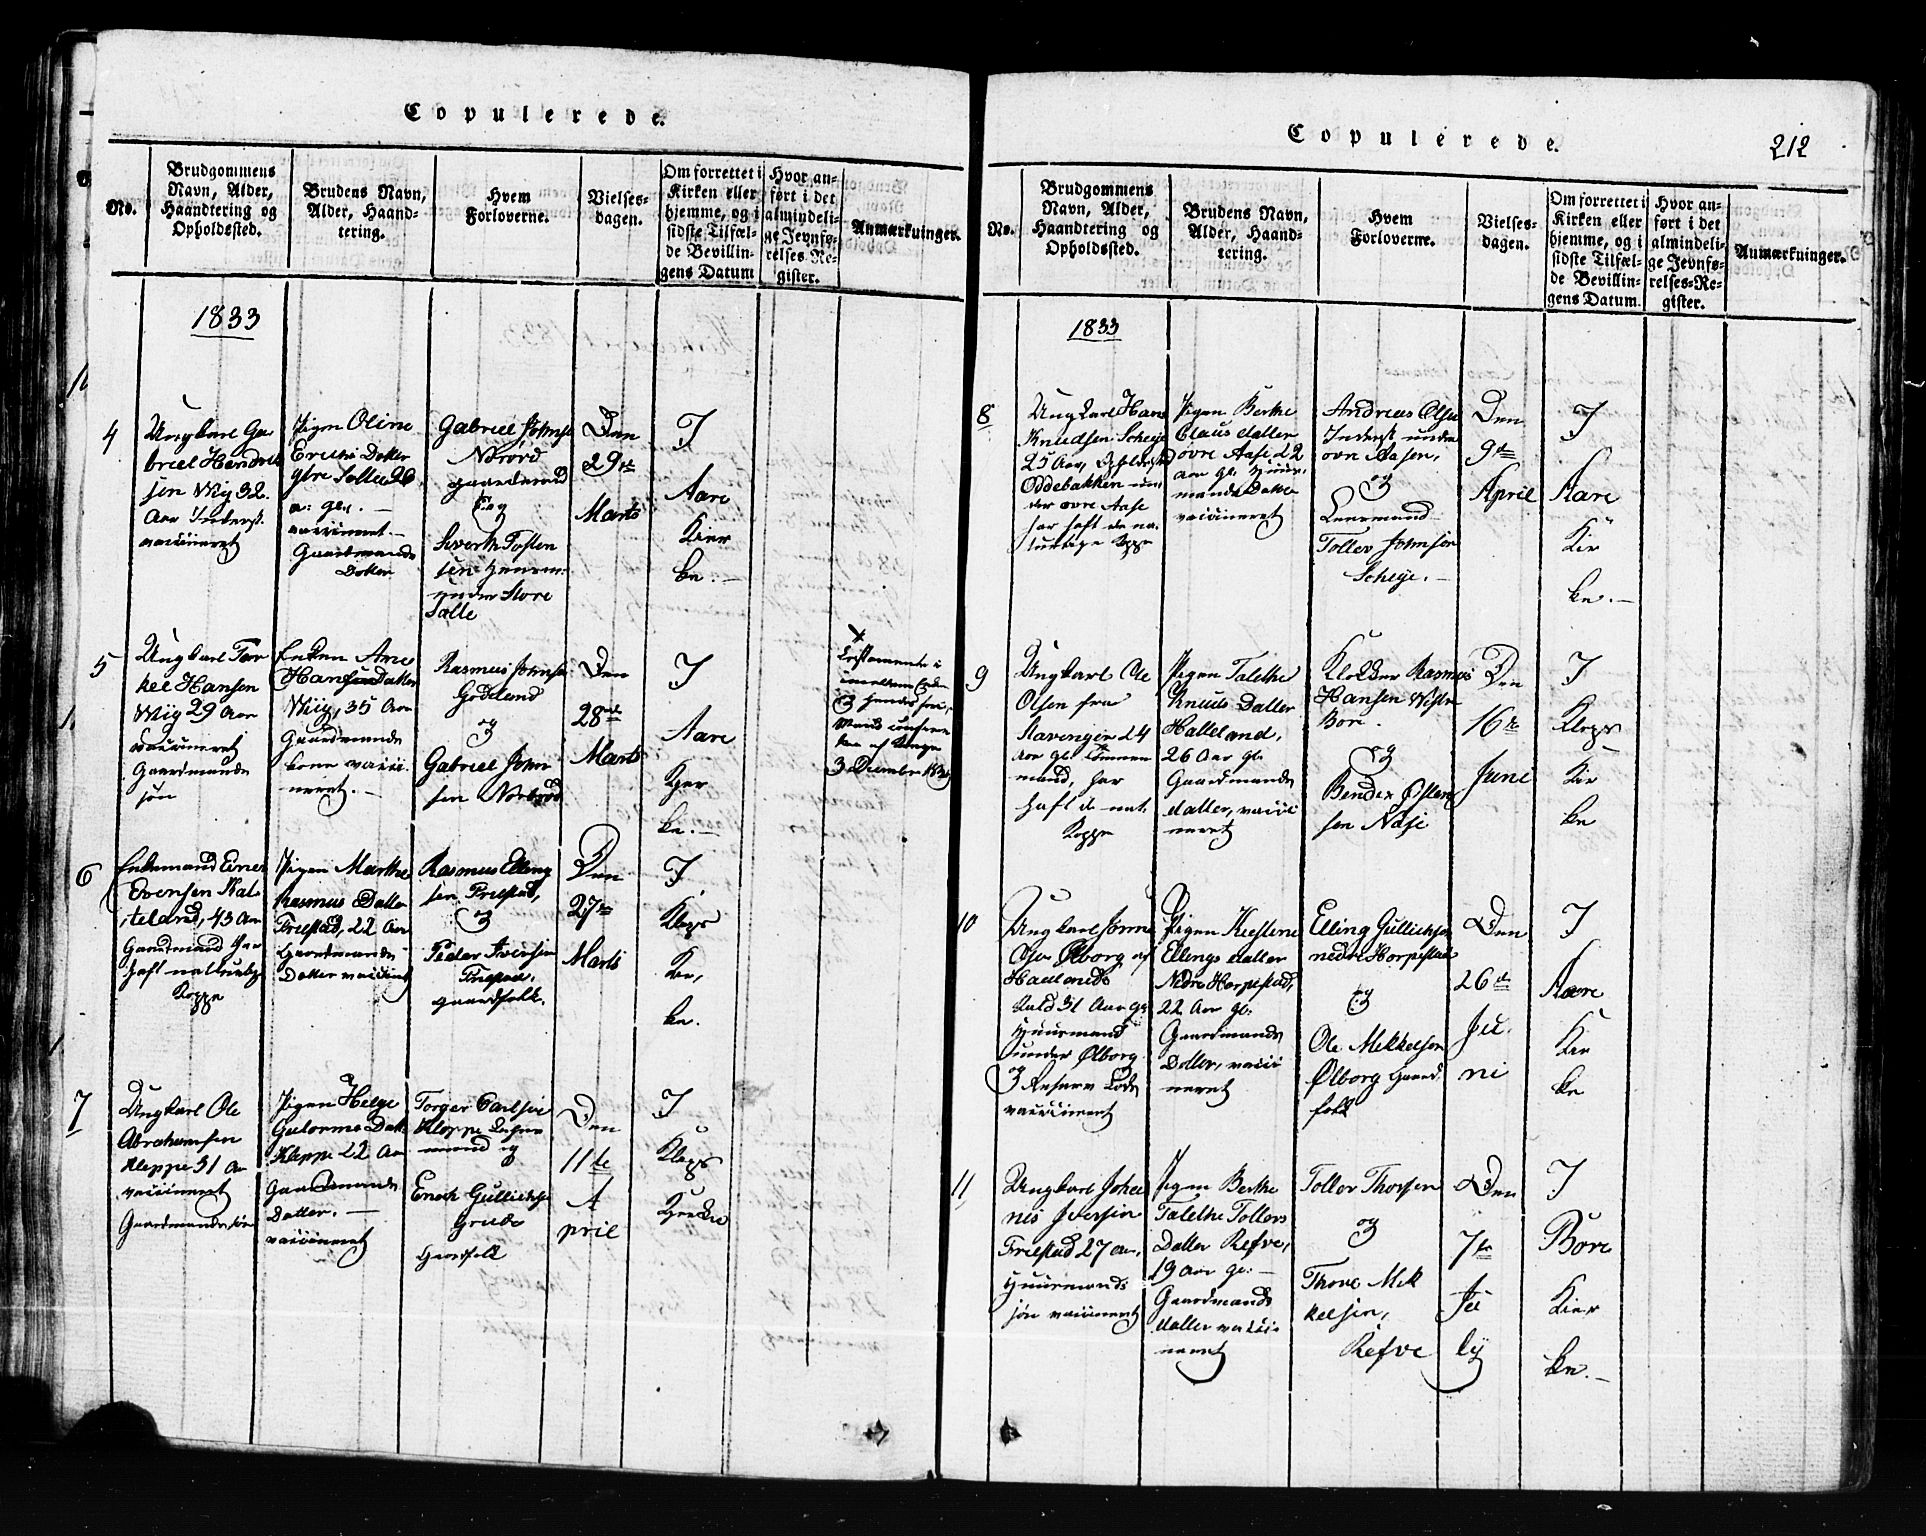 Copulerede.
No.
Brudgommens
Navn, Alder,
Haandtering og
Opholdssted.
Brudens Navn,
Alder, Haand-
tering.
Hvem
Forloverne.
Vielses-
dagen.
Om forrettet i
Kirken eller
hjemme, og i
sidste Tilfæl-
de Bevillin-
gens Datum
Hvor an-
ført i det
almindeli-
ge Jevnfø-
relses-Re-
gister.
Anmærkninger.
1833
4
Ungkarl Ga-
briel Hendrik
sen Wig 32
Aar Inderst.
vaccineret
Pigen Oline
Erichs Datter
a: gl. —
vaccineret. —
Gaardmands
Datter
Gabriel Johns
gaardmand
og
Sivert Tosten
sen
under Store
Salte
Den
29de
Marts
I
Aare
Kier
ke. —
5
Ungkarl Tor
kel Hansen
Wiig 29 Aar
vaccineret
Gaardmands
søn
Enken Ane
Hansdatter
Wiig, 35 Aar
Gaardmands
kone vacci-
neret. —
Rasmus Johns
Godeland
og
Gabriel John
sen
Den
28de
Marts
I
Aare
Kjer
ke. —
3 December
6
Enkemand Einer
Evensen Kal
, 43 Aar
Gaardmand har
haft naturlige
Kopper
Pigen Marthe
Rasmus Datter
Friestad, 22 Aar
Gaardmands
Datter vaccineret
Rasmus Elling
sen Friestad,
og
Peder Iversen
Friestad,
gaardfolk.
Den
27de
Marts
I
Klepp
Kir,
ke.
7
Ungkarl Ole
Abrahamsen
Kleppe 31 Aar
vaccineret
Gaardmandssøn
Pigen Helge
Gulorms Datt
Kleppe 22 Aar
Gaardmands
Datter. —
vaccineret
Torger Carlsen
Kleppe
mand og
Enoch Gullichsen
Grude
Gaardfolk
Den
11te
A
pril
I
Klepp
Kircke
Copulerede.
212
No.
Brudgommens
Navn, Alder,
Haandtering og
Opholdssted.
Brudens Navn,
Alder, Haand-
tering.
Hvem
Forloverne.
Vielses-
dagen.
Om forrettet i
Kirken eller
hjemme, og i
sidste Tilfæl-
de Bevillin-
gens Datum.
Hvor an-
ført i det
almindeli-
ge Jevnfø-
relses-Re-
gister.
Anmærkninger.
1833
8
Ungkarl Hans
Knudsen Scheye
25 Aar,
Oddebakken un-
der øvre Aase
har haft de na-
turlige Kopper
Pigen Berthe
Claus datter
øvre Aase 22
aar gl. Huus-
mands Datter
vaccineret
Andreas Olsen
Inderst under
øvre Aasen,
og
Leermand
Tollev Johnsen
Scheye. —
Den
9de
April
I
Aare
Kir
ke. —
9
Ungkarl Ole
Olsen fra
Stavanger 24
aar gl. Tømmer
mand, har
haft de nat.
Kopper
Pigen Talethe
Knuds Datter
Halleland,
26 Aar gl.
Gaardmands
datter, vacci
neret
Klokker Rasmus
Hansen Westre
Bore.
og
Bendix Østen
sen Næse
Den
16de
Juni
I
Klepp
Kir
ke
10
Ungkarl Jonne
Olsen Ølborg
31 Aar gl
Huusmand
under Ølborg
vaccineret
Pigen Kirstine
Ellings datter
Nedre Horpestad,
22 Aar gl.
Gaardmands
Datter, vacci
neret
Elling Gullichsen
nedre Horpestad
og
Ole Mikkelsen
Ølborg Gaard
folk
Den
26de
Ju-
ni
I
Aare
Kir
ke
11
Ungkarl Johan
nis Iversen
Friestad 27 aar,
Huusmands
søn vaccineret
Pigen Berthe
Talethe Tollevs
Datter Refve,
19 Aar gl. —
Gaardmands
datter vacci-
neret
Tollev Thorsen
og
Thore Mik
kelsen,
Refve
Den
7de
Ju
ly
I
Bore
Kier
ke. —